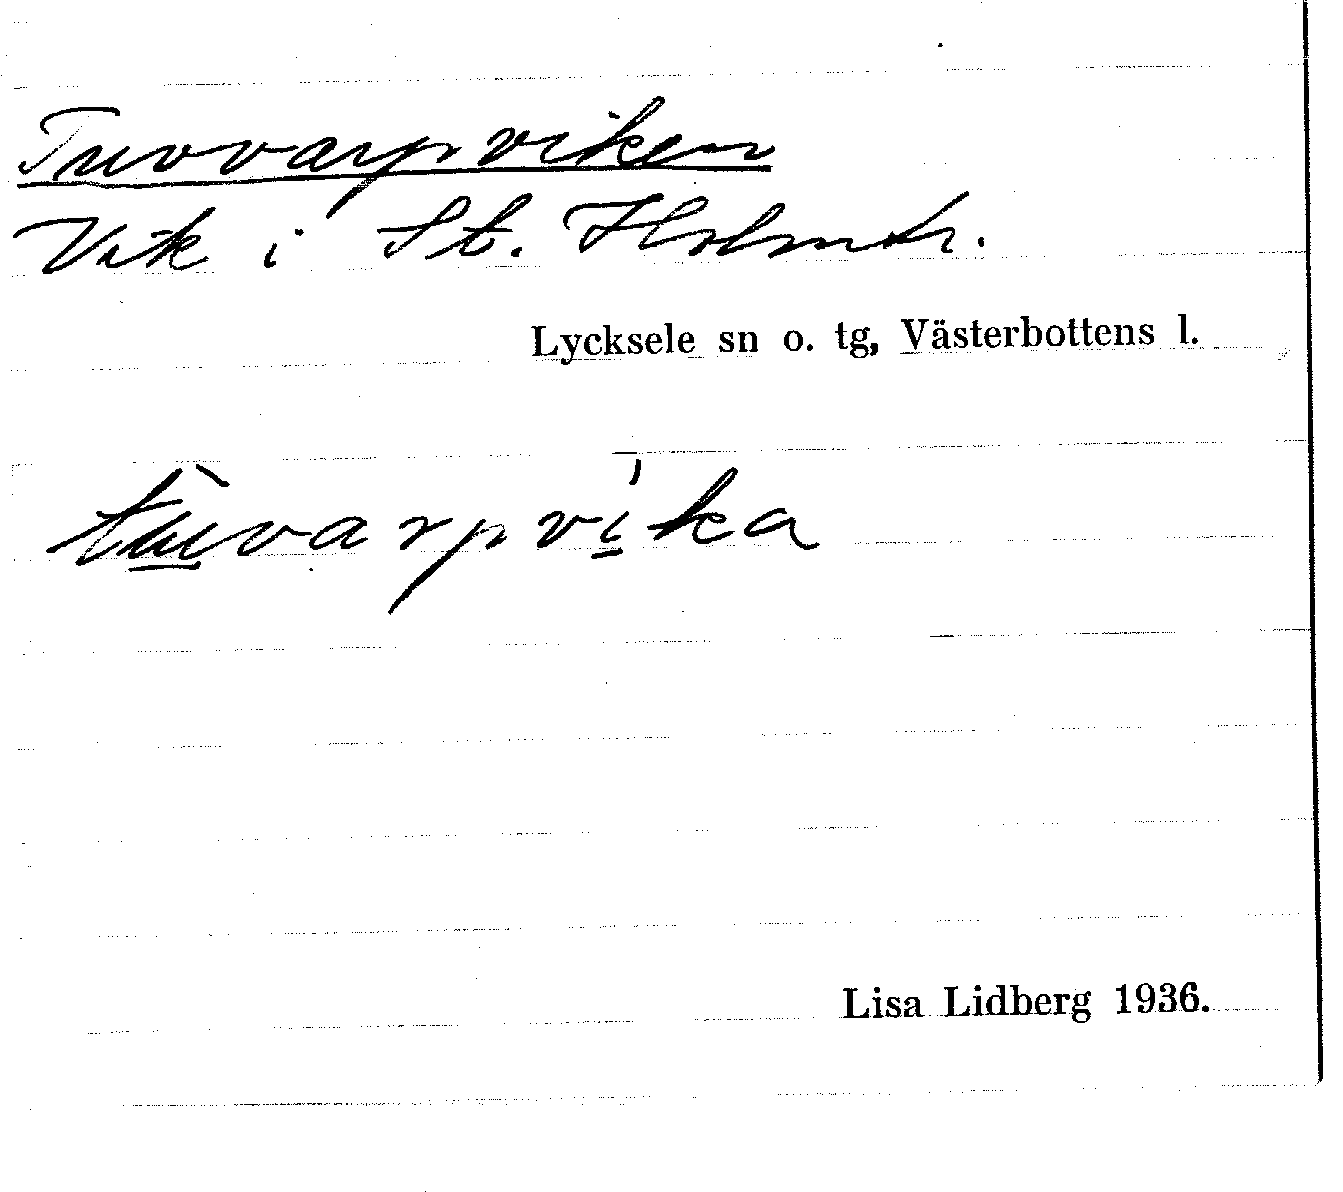 Tuvvarpviken
Vik i St. Holmtr.
Lycksele sn o. tg, Västerbottens l.
tùvarpvíka
Lisa Lidberg 1936.